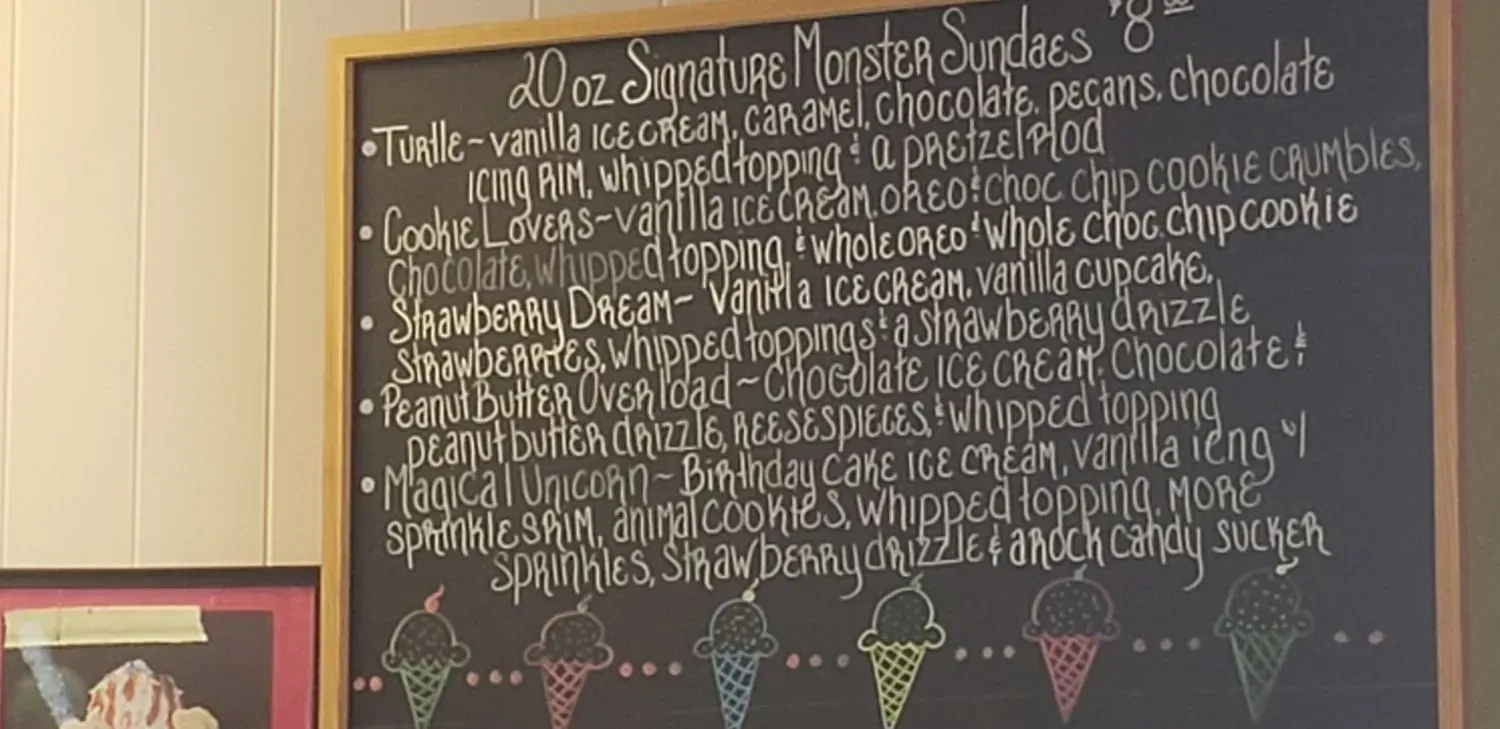 20 oz Signature Monster Sundaes $8.00
• Turtle~vanilla ice cream, caramel, chocolate, pecans, chocolate
icing rim, whipped topping & a pretzel rod
• Cookie Lovers~vanilla ice cream, oreo & choc chip cookie crumbles,
Chocolate, whipped topping, & whole oreo & whole choc. chip cookie
• Strawberry Dream~ vanilla ice cream, vanilla cupcake,
strawberries, whipped toppings & a strawberry drizzle
• Peanut Butter Overload~Chocolate ice cream, Chocolate &
peanut butter drizzle, reeses pieces, & whipped topping
• Magical Unicorn~Birthday cake ice cream, vanilla icing w/
sprinkles rim, animal cookies, whipped topping, more
sprinkles, strawberry drizzle & a rock candy sucker